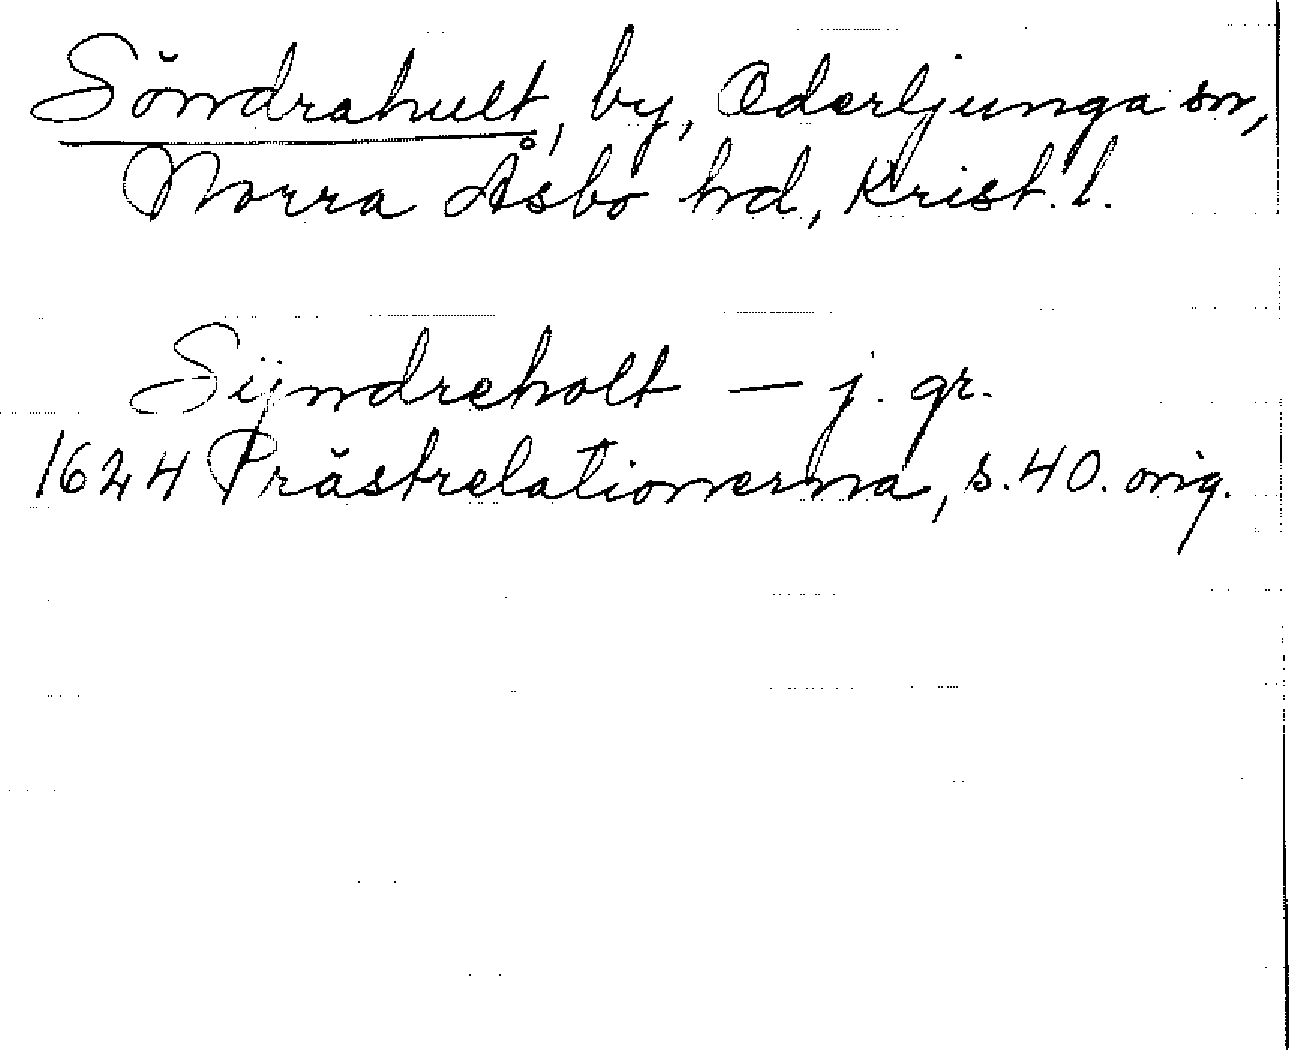 Söndrahult, by, Oderljunga sn,
Norra Åsbo hd, Krist. l.
Sÿndreholt — j. gr.
1624 Prästrelationerna, s. 40. orig.